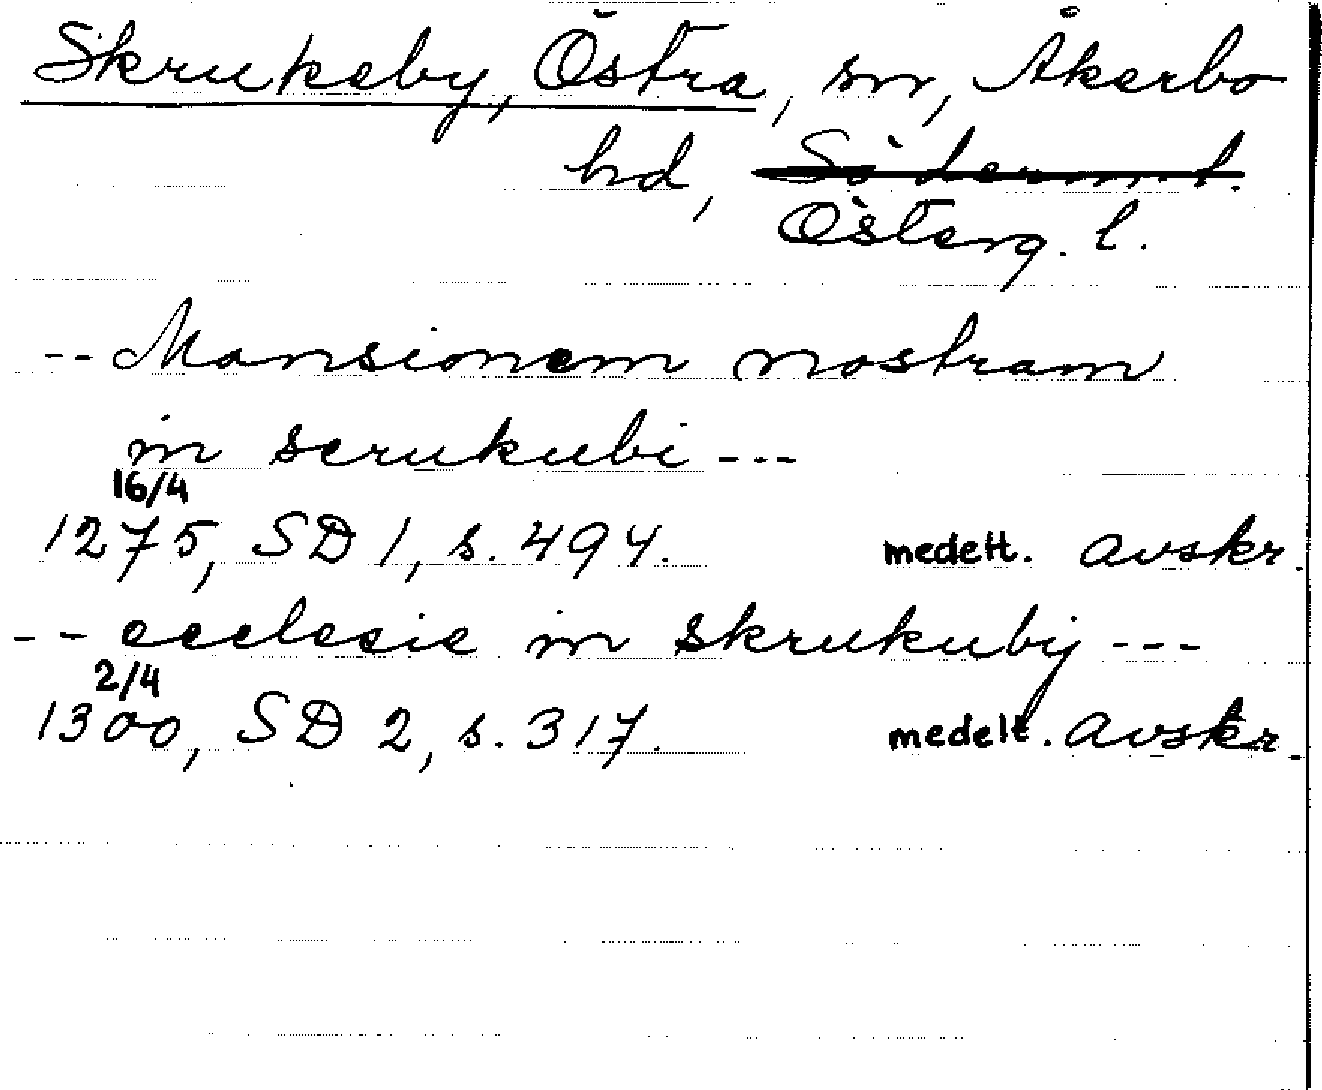 Skrukeby, Östra, sn, Åkerbo
hd, Söderm. l.
Österg. l.
-- Mansionem nostram
in scrukubi ---
16/4
1275, SD 1, s. 494. medelt. avskr.
-- ecclesie in skrukubij ---
2/4
1300, SD 2, s. 317. medelt. avskr.